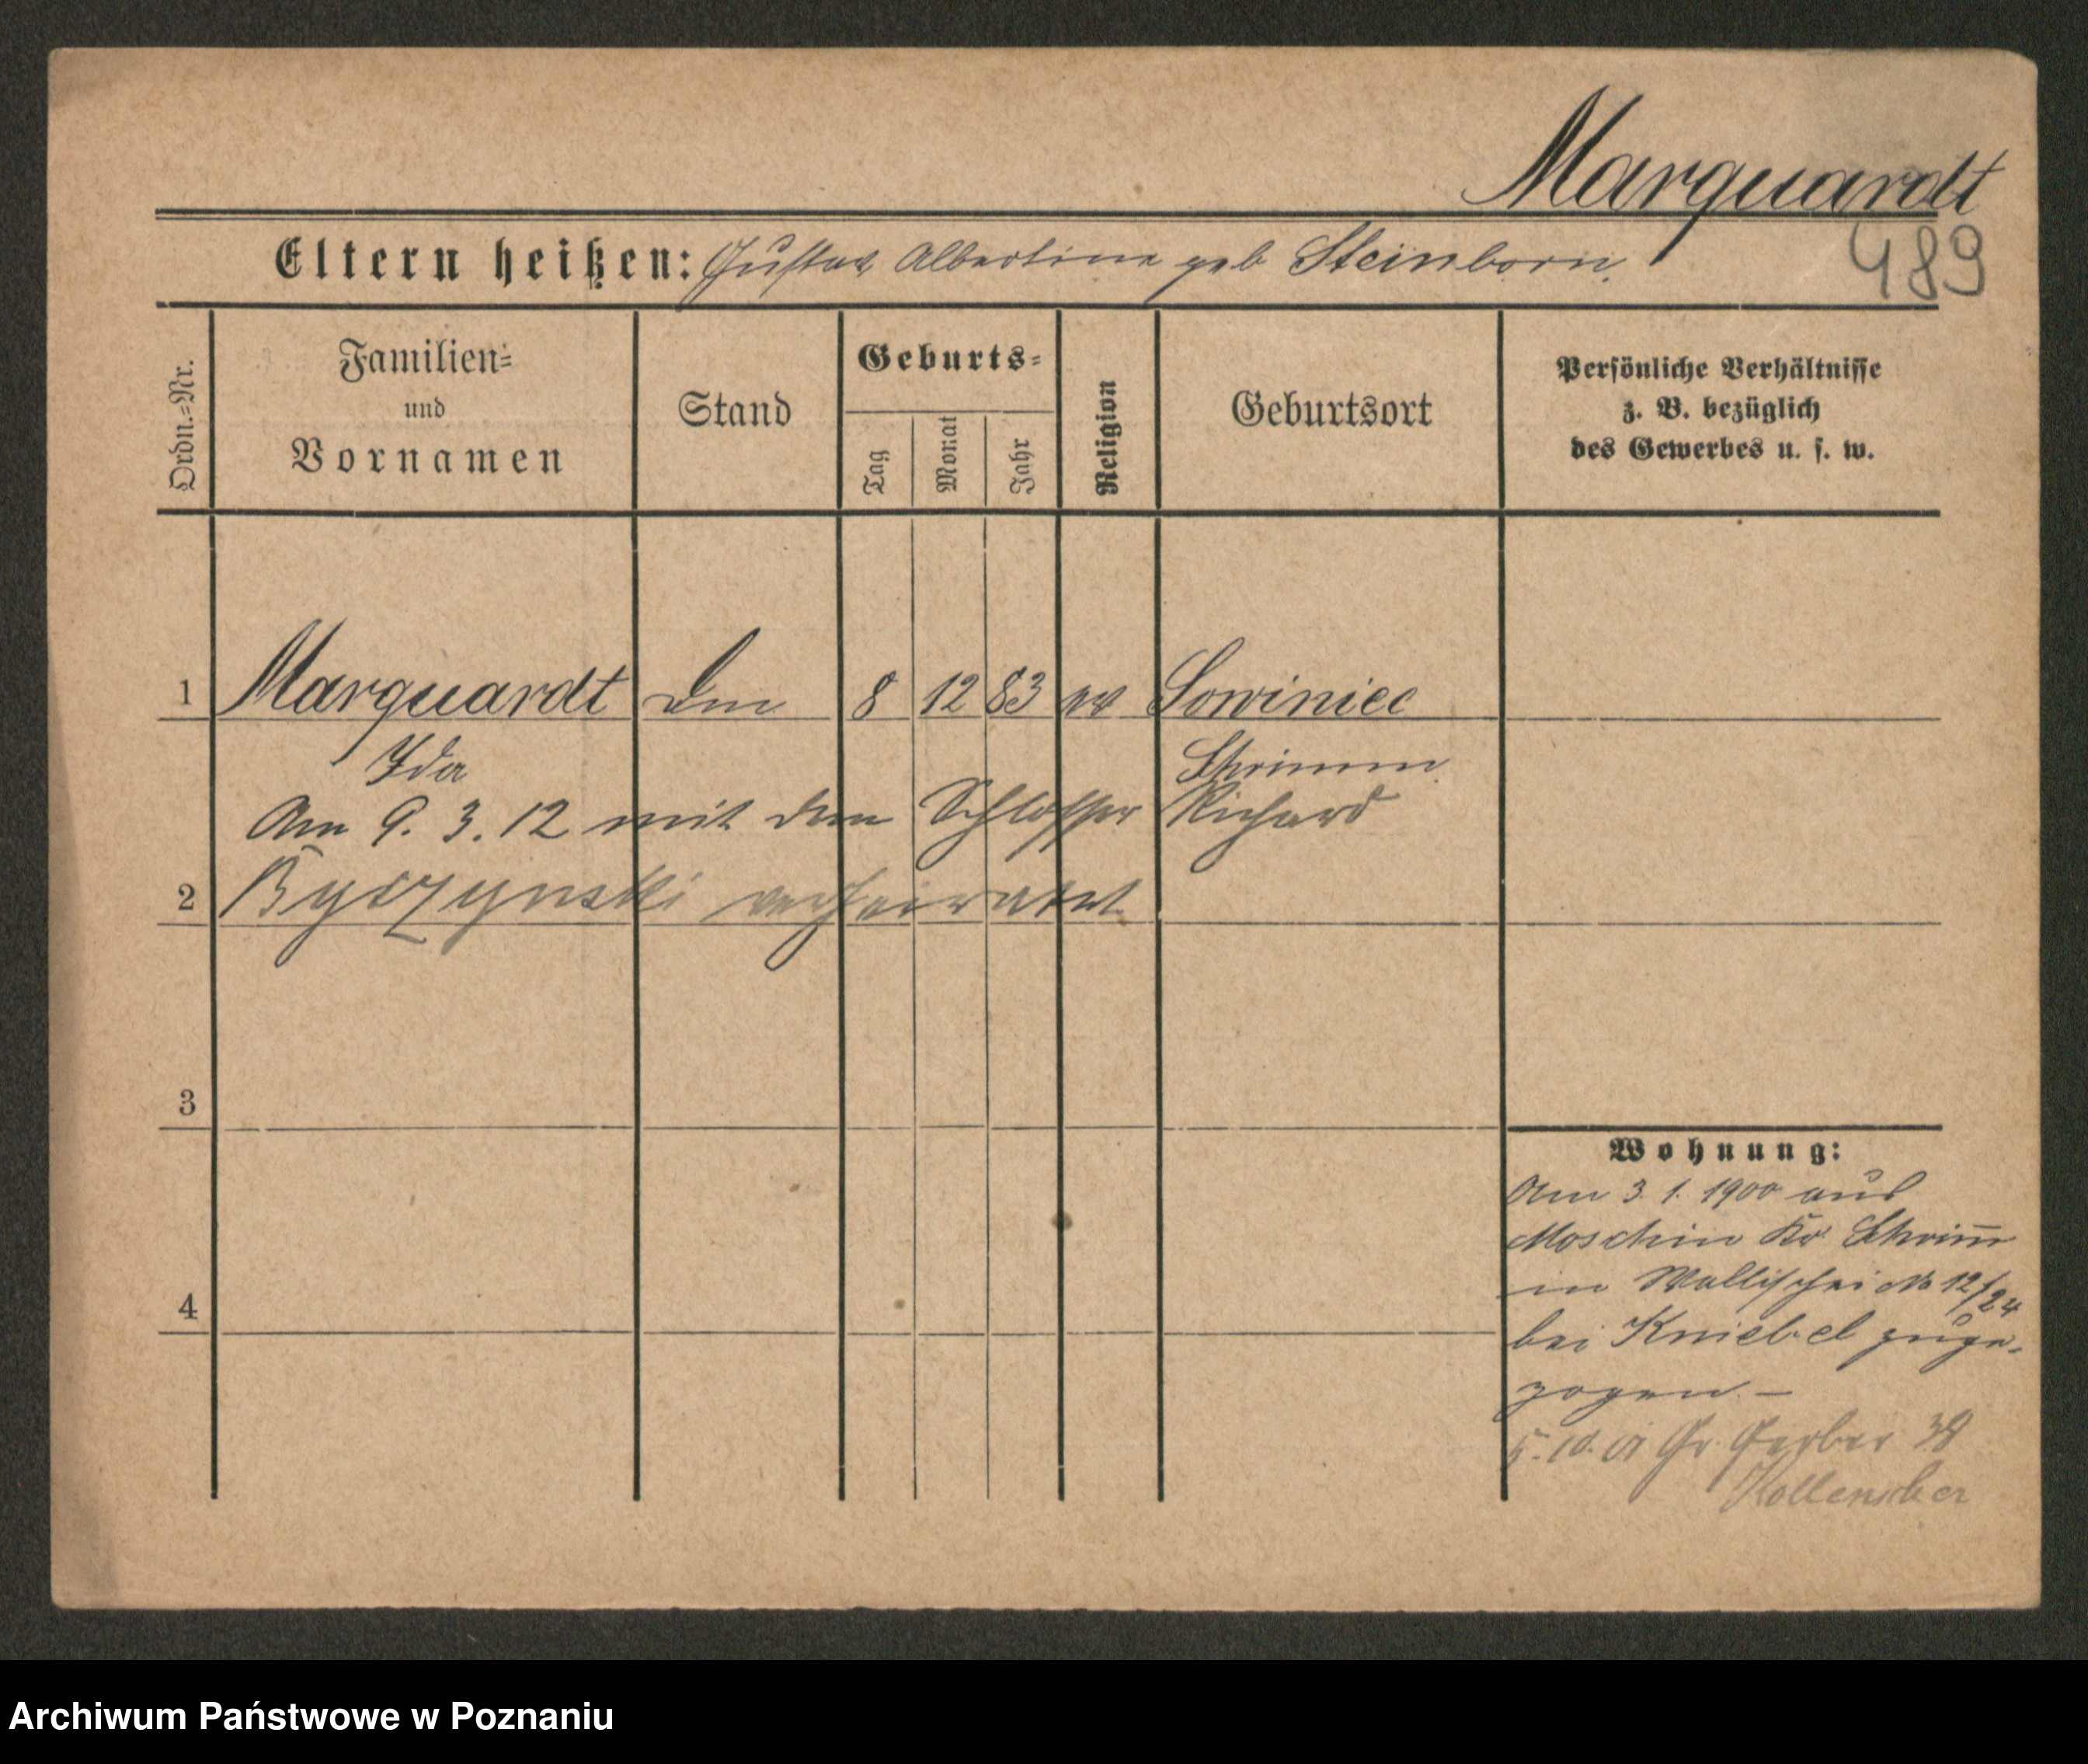 Marquardt
Eltern heißen: Gustav Albertine geb Steinborn.
489
Ordn.=Nr.
Familien=
und
Vornamen
Stand
Geburts=
Tag
Monat
Jahr
Religion
Geburtsort
Persönliche Verhältnisse
z. B. bezüglich
des Gewerbes u. s. w.
1 Marquardt 8 12 83 ev Sowiniec
Ida Schrimm
Am 9. 3. 12 mit dem Schlosser Richard
2 Byczynski verheiratet
3
4
Wohnung:
Am 3. 1. 1900 aus
Moschin Kr Schrim̄
in Wallischei No 12/24
bei Kniebel zuge-
zogen. —
5. 10. 01 Gr. Gerber 38
Kollenscher
Archiwum Państwowe w Poznaniu